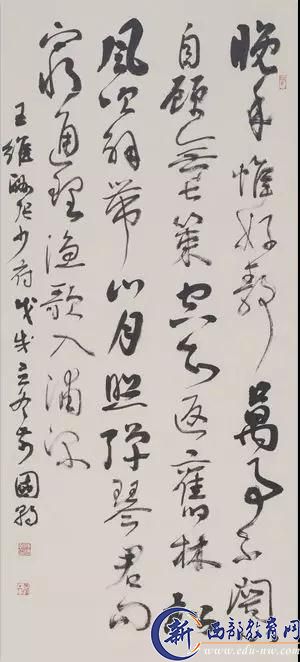 晚年惟好静萬事不關
自顧無長策空知返舊林松
風吹解帶山月照彈琴君問
窮通理漁歌入浦深
王維酬張少府戊戌立冬前國
新 西部教育网
www.edu-nw.com